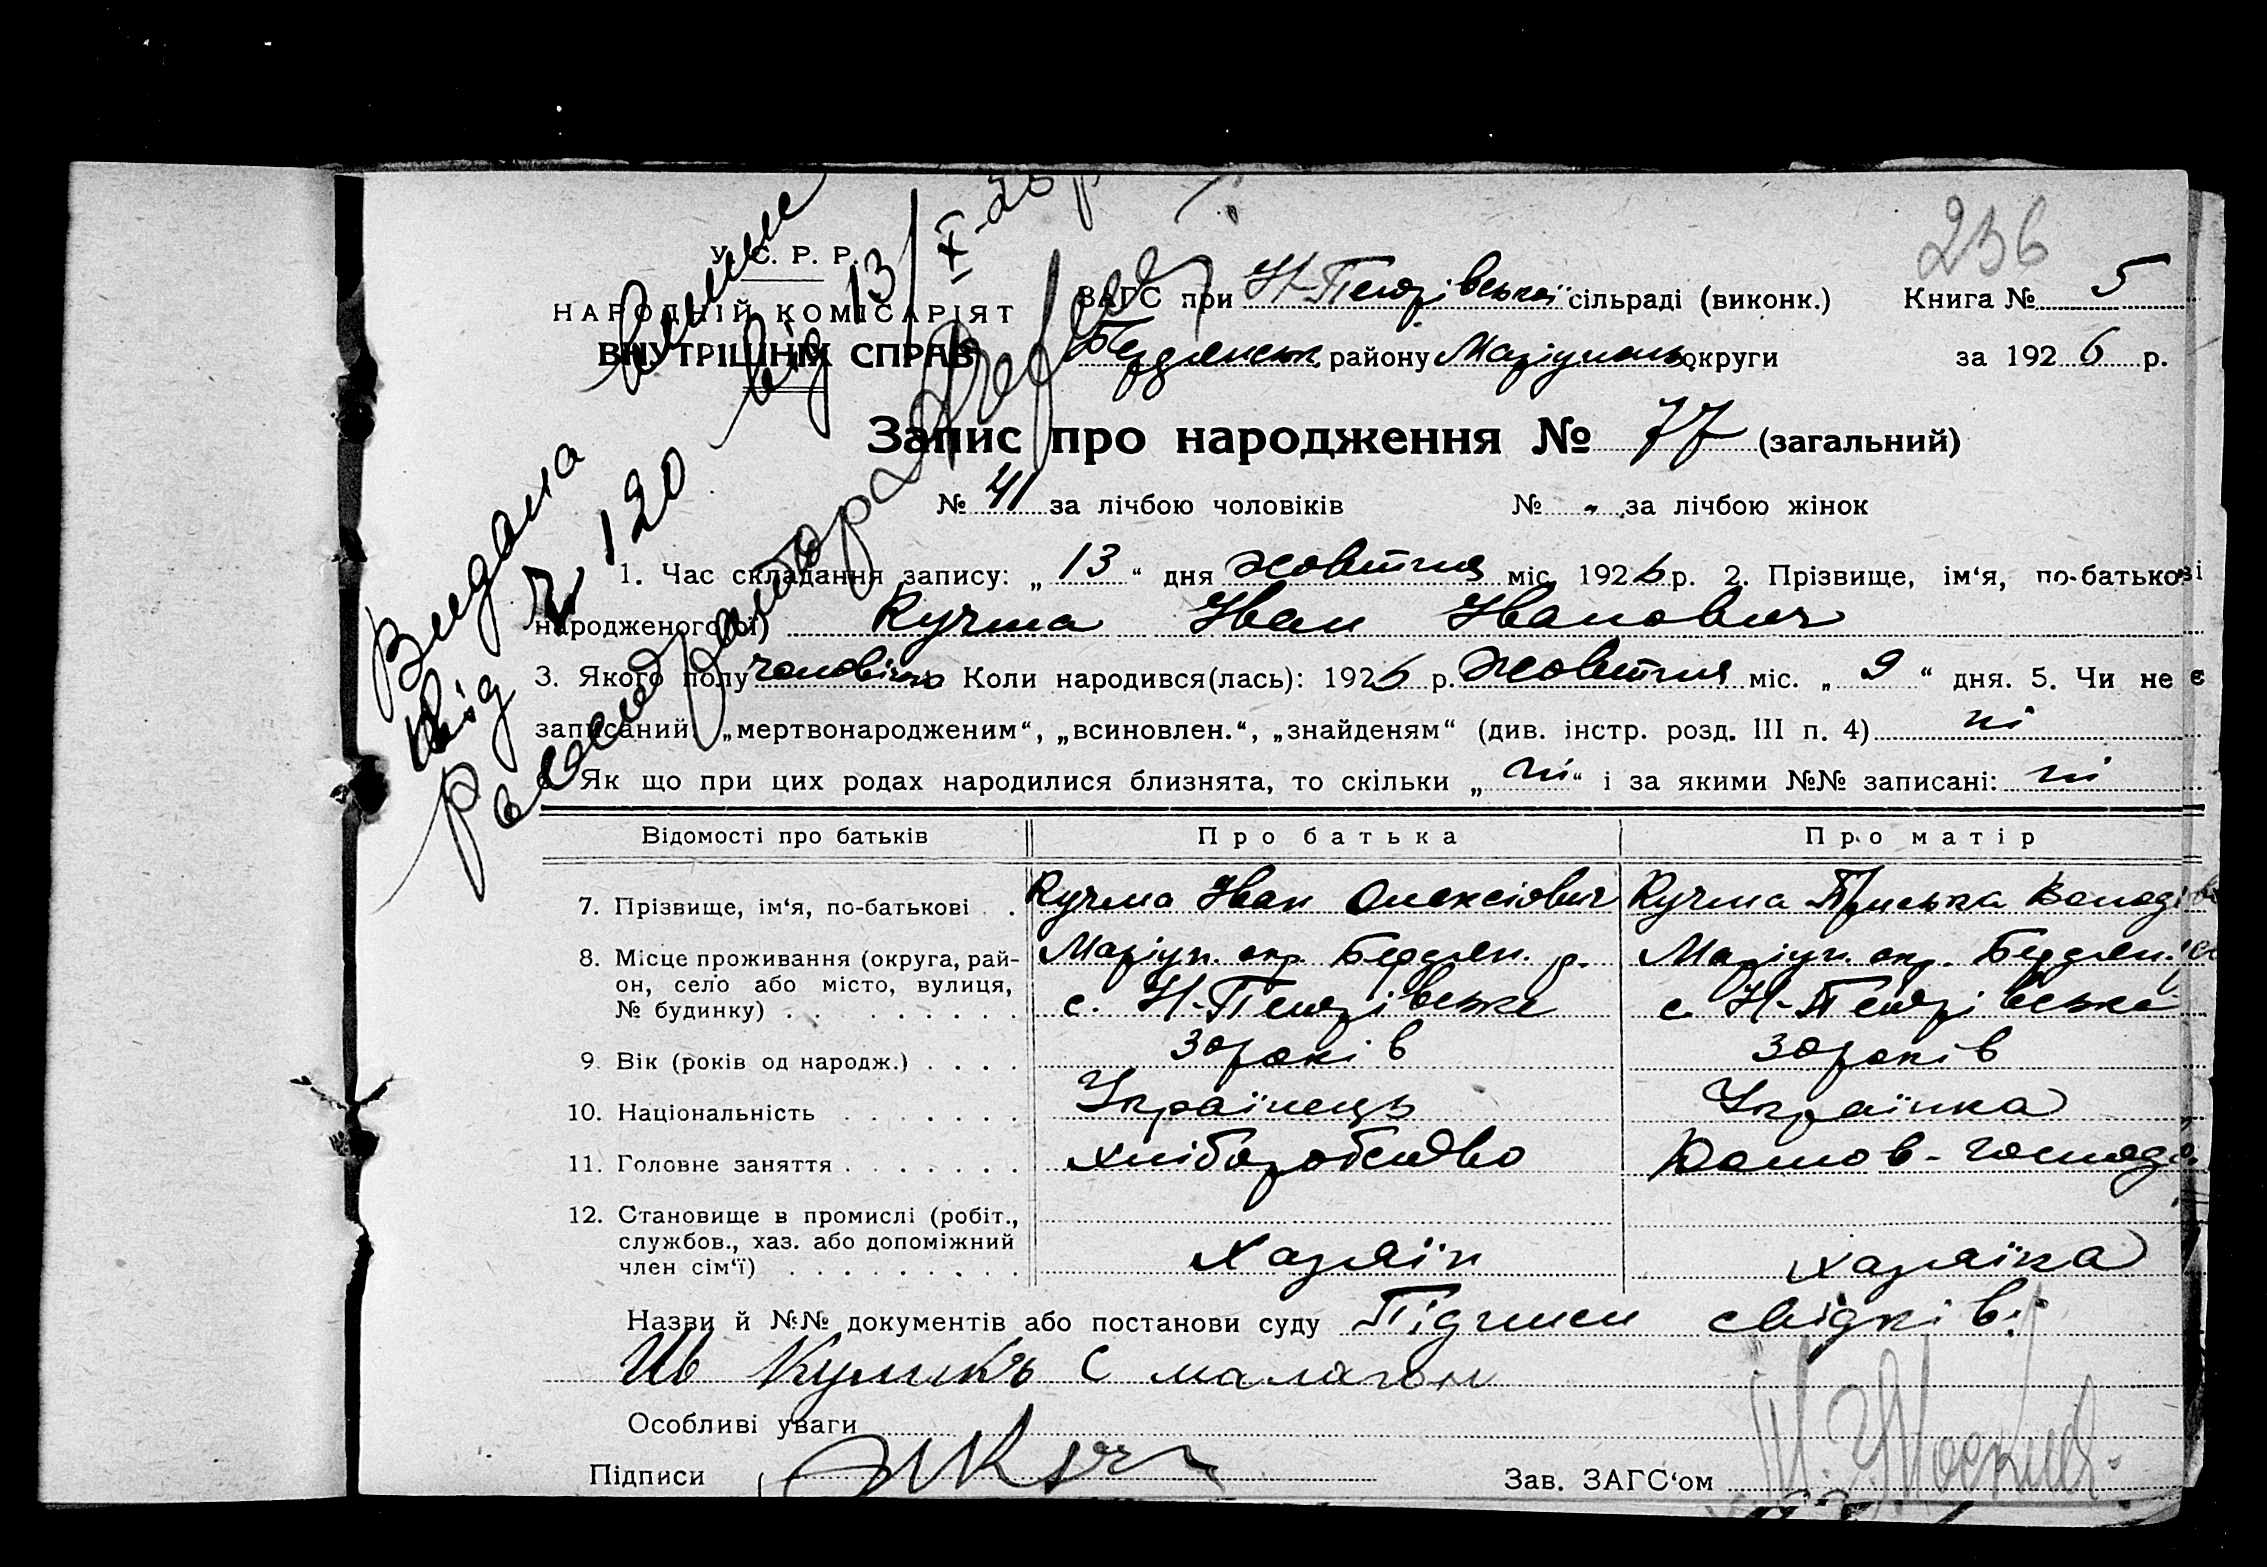 236
У. С. Р. Р.
НАРОДНІЙ КОМІСАРІЯТ
ВНУТРІШНІХ СПРАВ
ЗАГС при Н-Петрівській сільраді (виконк.) Книга № 5
Бердянськ. району Маріупольськ. округи за 1926 р.
Видана
від № 120 від 13/X-26 р.
Запис про народження № 77 (загальний)
№ 41 за лічбою чоловіків № „ за лічбою жінок
1. Час складання запису: „13“ дня жовтня міс. 1926 р. 2. Прізвище, ім‘я, по-батькові
народженого(ої) Кучма Іван Іванович
3. Якого полу чоловічого Коли народився(лась): 1926 р. жовтня міс. „9“ дня. 5. Чи не є
записаний: „мертвонародженим“, „всиновлен.“, „знайденям“ (див. інстр. розд. III п. 4) ні
Як що при цих родах народилися близнята, то скільки „ні“ і за якими №№ записані: ні
Відомості про батьків Про батька Про матір
7. Прізвище, ім‘я, по-батькові Кучма Іван Олексійович Кучма Приська
8. Місце проживання (округа, рай- Маріуп. окр. Бердян. р. Маріуп. окр. Бердян.
он, село або місто, вулиця,
№ будинку) с. Н-Петрівське с. Н-Петрівське
9. Вік (років од народж.) 30 років 30 років
10. Національність Українець Українка
11. Головне заняття хліборобство Домов-господ.
12. Становище в промислі (робіт.,
службов., хаз. або допоміжний
член сім‘ї) Хазяїн хазяїка
Назви й №№ документів або постанови суду Підписи свідків:
Ив Куликъ С
Особливі уваги
Підписи Зав. ЗАГС‘ом